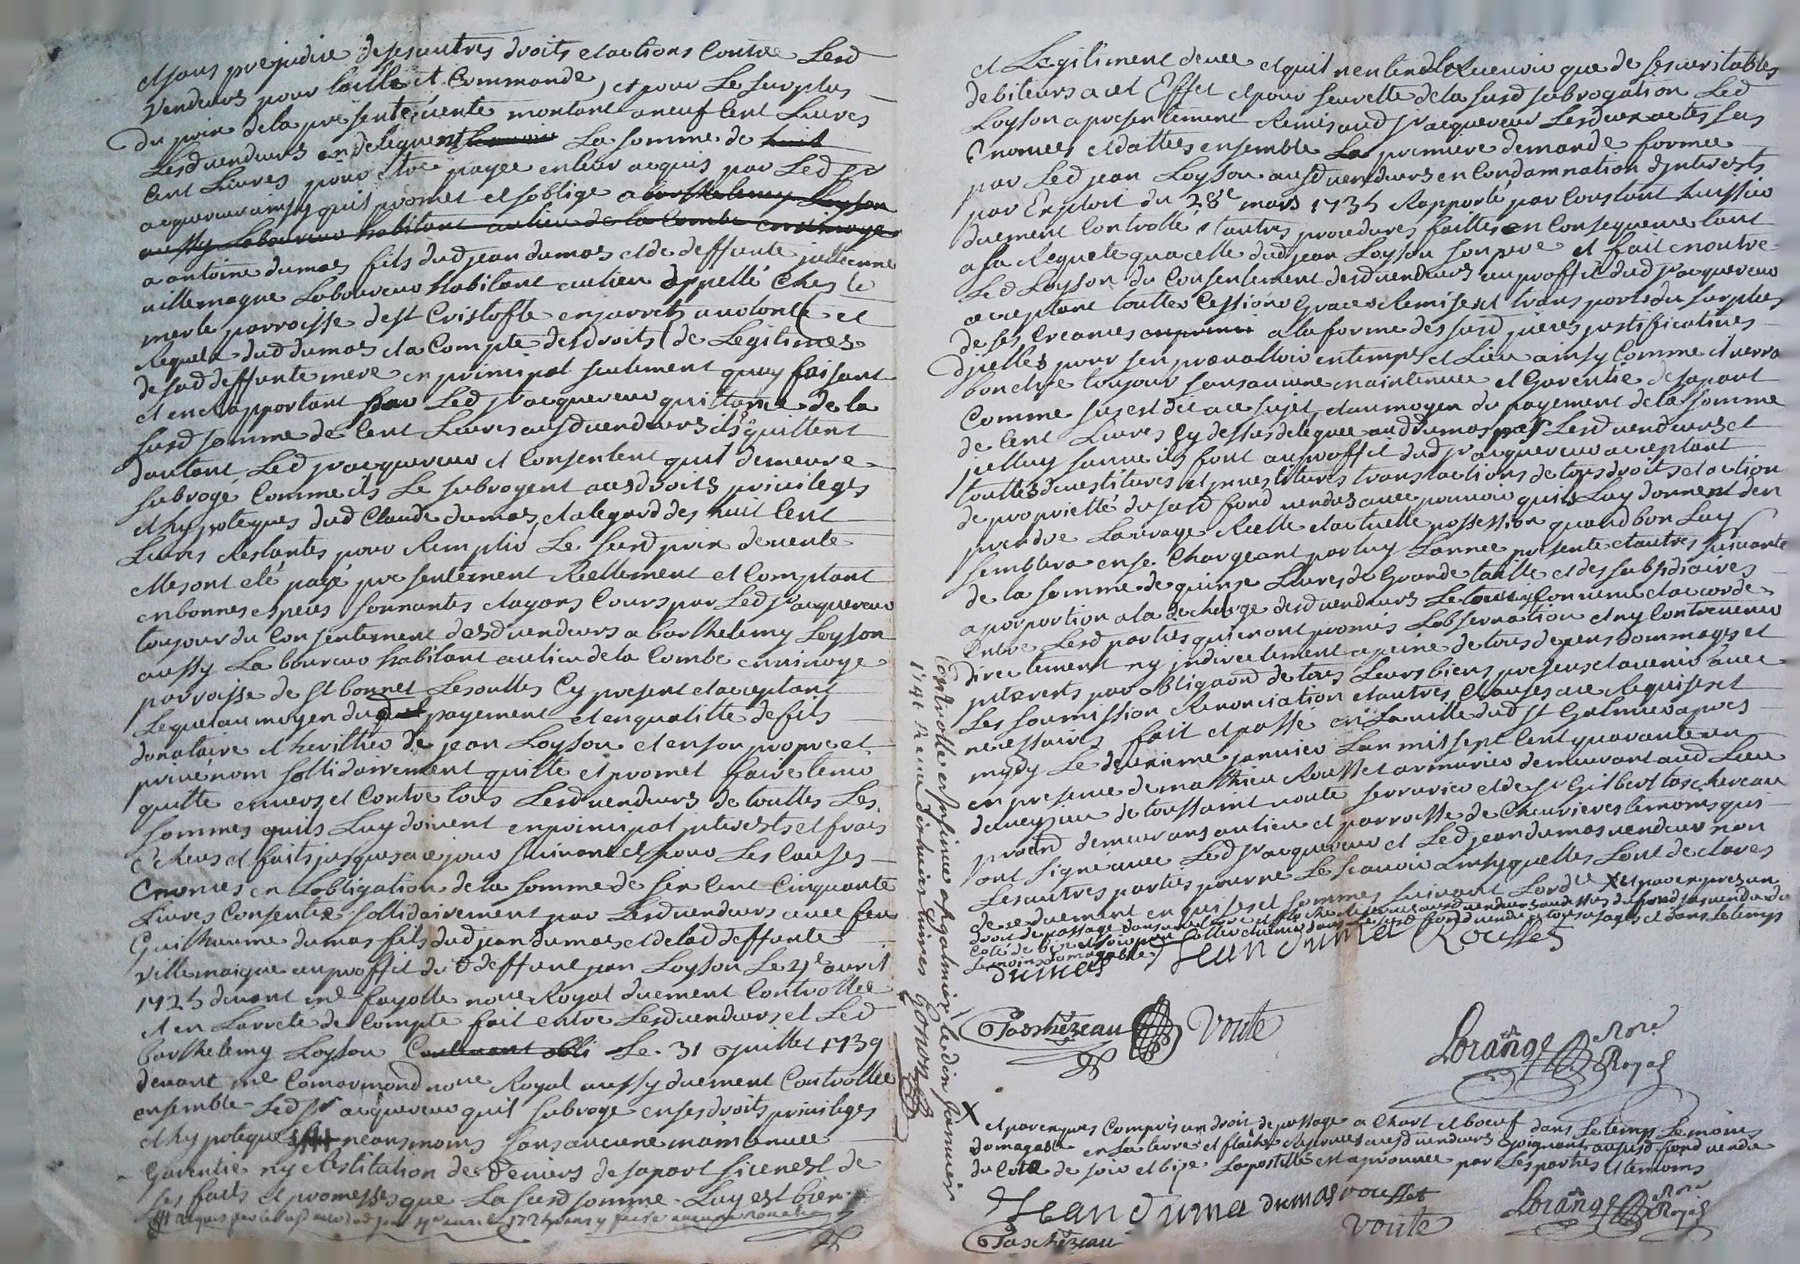 et sans prejudice de ses autres droits et actions Contre Lesd
vendeurs pour taille et Commande, et pour Le surplus
du prix de la presente vente montant a neuf Cent Livres
Lesd vendeurs en deleguent La somme de
Cent Livres pour etre payée en leur acquis par Led sr
acquereur ainsy qu'il promet et soblige a barthelemy Loyson
aussy Laboureur habitant au lieu de la Combe en rivoye
a antoine dumas fils dud jean dumas et de deffunte jullienne
villemagne Laboureur habitant au lieu appellé Ches le
merle parroisse de st Cristofle en jarrets a volonté et
Requete dud dumas et a Compte des droits de Legitimes
de sad deffunte mere en principal seulement quoy faisant
et en rapportant par Led sr acquereur quittance de la
susd somme de Cent Livres ausd vendeurs ils quittent
dautant Led sr acquereur et Consentent quil demeure
subrogé Comme ils Le subrogent aux droits privileges
et hypoteques dud Claude dumas, et a legard des huit Cent
Livres Restantes pour Remplir Le susd prix de vente
elles ont eté payé presentement Reellement et Comptant
en bonnes especes sonnantes et ayans Cours par Led sr acquereur
toujour du Consentement desd vendeurs a barthelemy Loyson
aussy Laboureur habitant au lieu de la Combe en rivoye
parroisse de St bonnet Les oulles Cy present et acceptant
Lequel au moyen dud payement et en qualitte de fils
donataire et heritier de jean Loyson et en son propre et
privé nom sollidairement quitte et promet faire tenir
quitte envers et Contre tous Lesd vendeurs de touttes Les
sommes quils Luy doivent en principal interests et frais
echeus et faits jusques a ce jour suivant et pour Les Causes
enoncés en Lobligation de la somme de six Cent Cinquante
Livres Consentie sollidairement par Lesd vendeurs avec feu
Guilhaume dumas fils dud jean dumas et de lad deffunte
villemaigne au proffit du d deffunt jean Loyson Le 21e avril
1725 devant me fayolle nore Royal duement Controllée
et en Larreté de Compte fait entre Lesd vendeurs et Led
barthelemy Loyson Le 31 juillet 1739
devant me Comarmond nore Royal aussy duement Controllée
ensemble Led sr acquereur quil subroge en ses droits privileges
et hypoteques neansmoins sans aucune maintenue
Garentie ny Restitution de deniers de sa part si ce nest de
ses faits et promesses que La susd somme Luy est bien
Controllé et insinué a st galmier le dix janvier
1741 Reçu dix huit livres Gonon
et Legitiment deue et quil n'entend Recevoir que de ses veritables
debiteurs a cet Effet et pour seurette de la susd subrogation Led
Loyson a presentement Remis aud sr acquereur Lesd deux actes sus
Enoncés et dattés ensemble La premiere demande formée
par Led jean Loyson ausd vendeurs en Condamnation d'interests
par Exploit du 28e mars 1735 Rapporté par Constant huissier
duement Controllé et autres procedures faittes en Consequence tant
a sa Requete qua celle dud jean Loyson son pere et fait en outre
Led Loyson du Consentement desd vendeurs au proffit dud sr acquereur
acceptant touttes Cessions Graces Remises et transports du surplus
de ses Creances a la forme des susd pieces justificatives
dicelles pour sen prevalloir en temps et Lieu ainsy Comme il verra
bon etre toujour sans aucune maintenue et Garentie de sa part
Comme sus est dit a ce sujet, et au moyen du payement de la somme
de Cent Livres Cy dessus deleguée aud dumas Lesd vendeurs et
font au proffit dud sr acquereur acceptant
touttes devestitures et investitures translactions de tous droits et action
de proprietté du susd fond vendus avec pouvoir quils Luy donnent den
prendre La vraye Reelle et actuelle possession quand bon Luy
semblera en se Chargeant par luy Lannee presente et autres suivante
de la somme de quinze Livres de Grande taille et des subsidiaires
a porportion a la decharge desd vendeurs Convenu et accordé
Entre Lesd parties qui en ont promis Lobservation et ny Contrevenir
directement ny indirectement a peine de tous depens dommages et
interests par obligaon de tous Leurs biens presens et avenir avec
Les soumission Renonciation et autres Clauses a ce Requises et
necessaires fait et passé en La ville dud St Galmier apres
mydy Le deuxieme janvier Lan mil sept Cent quarante un
en presence de mathieu Rousset armurier demeurant aud Lieu
de veyzeu de toussaint voute serrurier et de sr Gilbert paschereau
demeurans au lieu et parroisse de Chevrieres temoins qui
ont signé avec Led sr acquereur et Led jean dumas vendeur non
Les autres parties pour ne Le scavoir ainsy quelles Lont declaré
de ce duement enquises et sommés suivant Lordce X et par expres un
dumas Jean dumas Rousset
Paschezeau Voute
Lorange Nore Royal
X et par expres Compris un droit de passage a Chart et boeuf dans Le temp Le moins
domagable en La terre et flache Reservés ausd vendeurs Joignant au susd fond vendu
du Coté de soir et bize. Lapostille est aprouvée par Les parties et temoins
Jean dumas dumas rousset
Paschezeau Voute Lorange Nore Royal